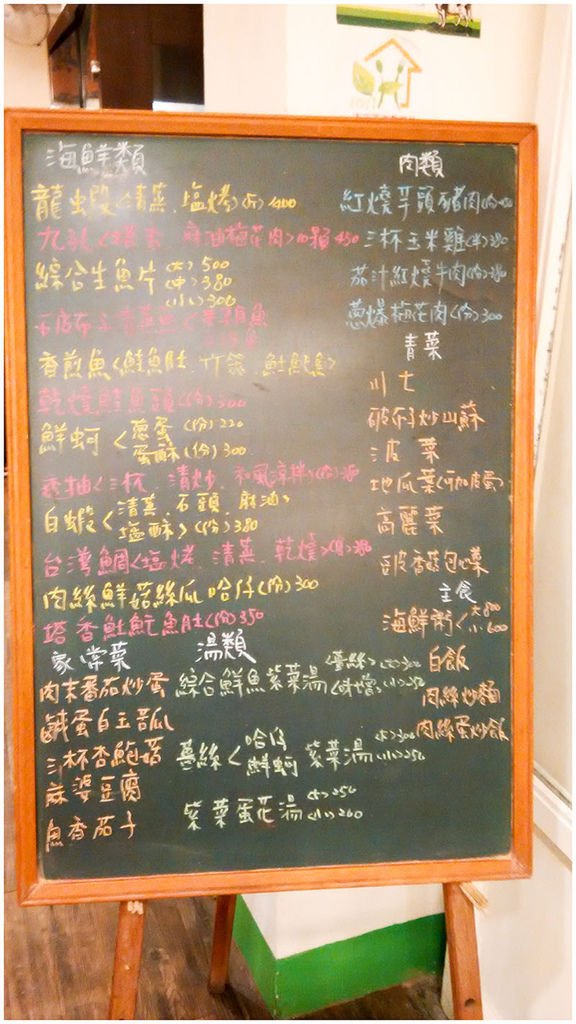 海鮮類
龍蝦<清蒸、塩烤>(斤)400
九孔 麻油梅花肉>10顆450
綜合生魚片(大)500
(中)380
(小)300
清蒸
香煎魚<鮭魚肚、竹、魠魠魚>
乾燒鮭魚頭(份)300
鮮蚵<蔥蛋(份)220
蛋酥(份)300
透抽<三杯、清炒、和風涼拌>(份)
白蝦<清蒸、石頭、麻油>
塩酥>(份)380
台灣鯛<塩烤、清蒸、乾燒>
肉絲鮮菇絲瓜哈仔(份)300
塔香魠魠魚肚(份)350
家常菜
肉末番茄炒蛋
鹹蛋白玉苦瓜
三杯杏鮑菇
麻婆豆腐
魚香茄子
湯類
綜合鮮魚紫菜湯<薑絲>(大)300
<味噌>(小)250
薑絲<哈仔
鮮蚵 紫菜湯(大)300
(小)250
紫菜蛋花湯(大)250
(小)200
肉類
紅燒芋頭豬肉(份)
三杯玉米雞(半)380
茄汁紅燒牛肉(份)
蔥爆梅花肉(份)300
青菜
川七
破布子炒山蘇
波菜
地瓜葉(可加皮蛋)
高麗菜
豆皮香菇包心菜
主食
海鮮粥<大800
小600
白飯
肉絲炒麵
肉絲蛋炒飯